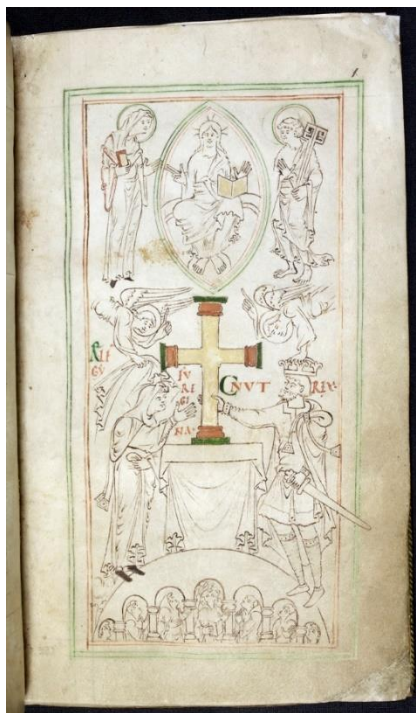 ÆLF
GV
FV
RE
GI
NA·
CNVT REX